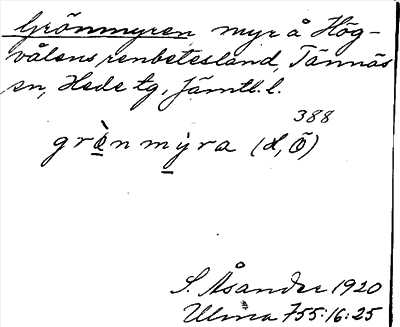 Grönmyren myr å Hög-
vålens renbetesland, Tännäs
sn, Hede tg, Jämtl.l.
388
grò̱n mỳ̱ra (d, Õ)
S. Åsander 1920
Ulma 755:16:25